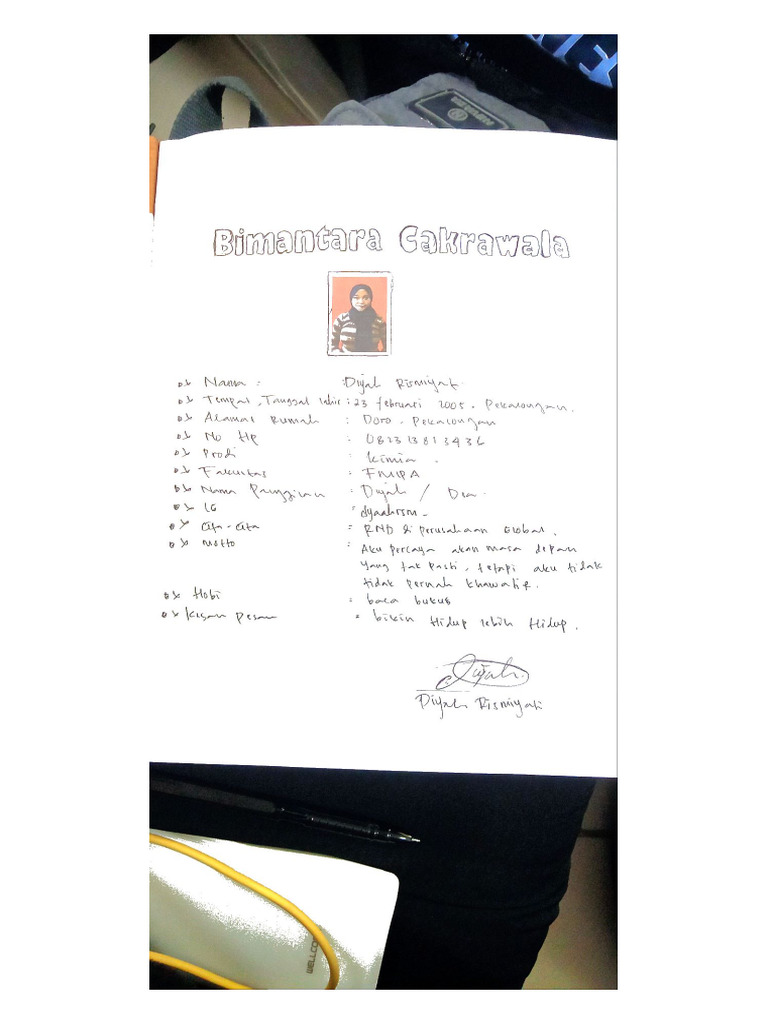 Bimantara Cakrawala
Nama : Diyah Rismiyati
Tempat, Tanggal lahir : 23 februari 2005. Pekalongan.
Alamat Rumah : Doro. Pekalongan
No Hp : 082313813436
Prodi : Kimia.
Fakultas : FMIPA
Nama Panggilan : Diyah / Dia.
IG : dyaahrsm_
Cita-Cita : RND di perusahaan Global.
Motto : Aku percaya akan masa depan
yang tak pasti. tetapi aku tidak
tidak pernah khawatir.
Hobi : baca buku
Kesan pesan : bikin Hidup lebih Hidup.
Diyah.
Diyah Rismiyati
WELLCO